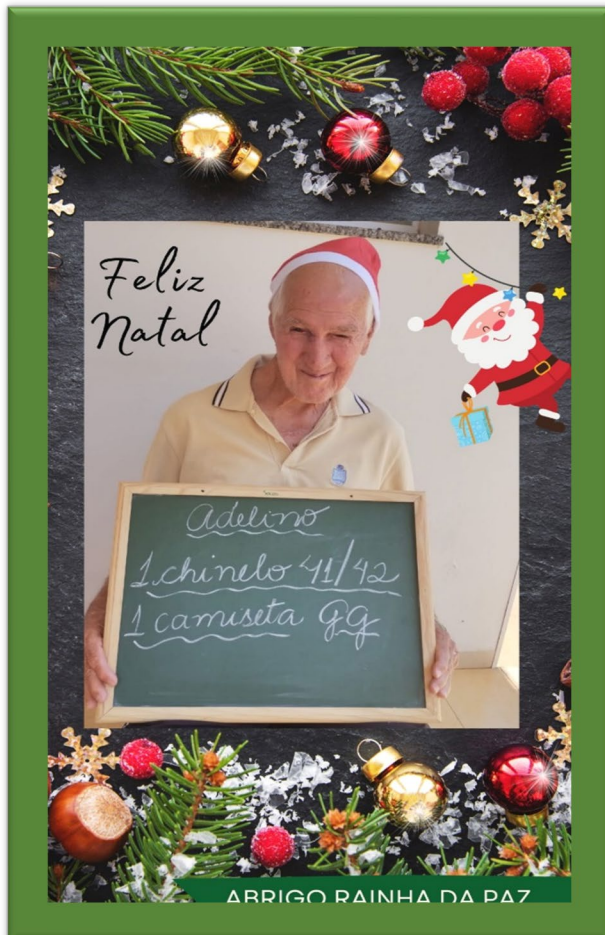 Feliz
Natal
Adelino
1 chinelo 41/42
1 camiseta GG
ABRIGO RAINHA DA PAZ